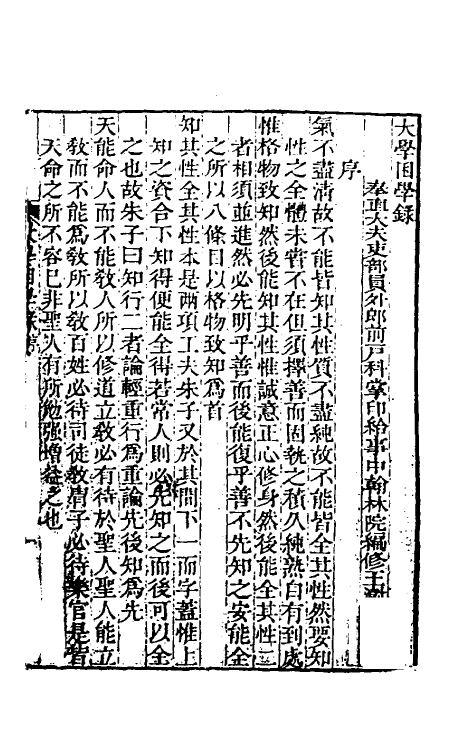 大學困學錄
奉直大夫吏部員外郎前戶科掌印給事中翰林院編修王澍
序
氣不盡清故不能皆知其性質不盡純故不能皆全其性然要知
性之全體未嘗不在但須擇善而固執之積久純熟自有到處
惟格物致知然後能知其性惟誠意正心修身然後能全其性二
者相須並進然必先明乎善而後能復乎善不先知之安能全
之所以八條目以格物致知為首
知其性全其性本是兩項工夫朱子又於其間下一而字蓋惟上
知之資合下知得便能全得若常人則必先知之而後可以全
之也故朱子曰知行二者論輕重行為重論先後知為先
天能命人而不能教人所以修道立教必有待於聖人聖人能立
教而不能為教所以教百姓必待司徒教胄子必待樂官是皆
天命之所不容已非聖人有所勉强增益之也
大學困學錄序